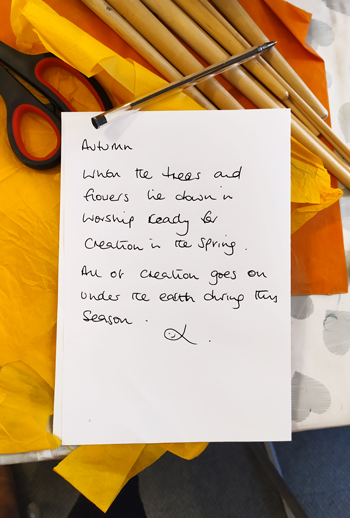 Autumn
When the trees and
flowers lie down in
worship ready for
creation in the spring.
All of creation goes on
under the earth during this
season.